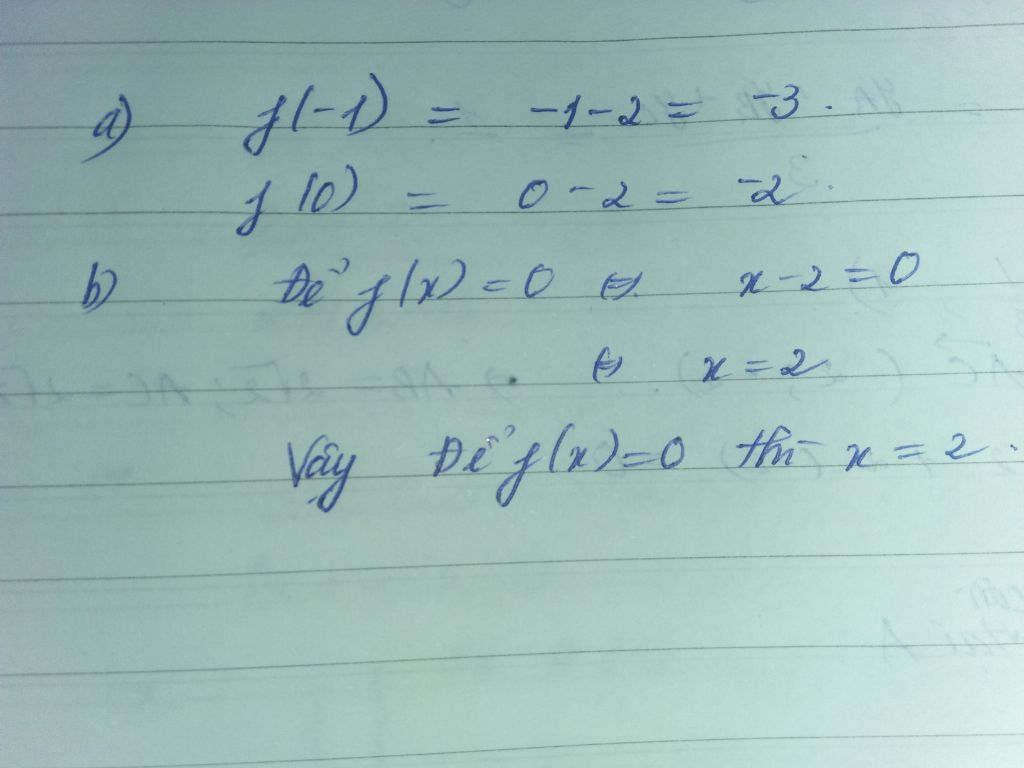 a) f(-1) = -1-2 = -3.
f(0) = 0-2 = -2.
b) Để f(x) = 0 ⇔ x-2=0
⇔ x=2
Vây Để f(x)=0 thì x=2.